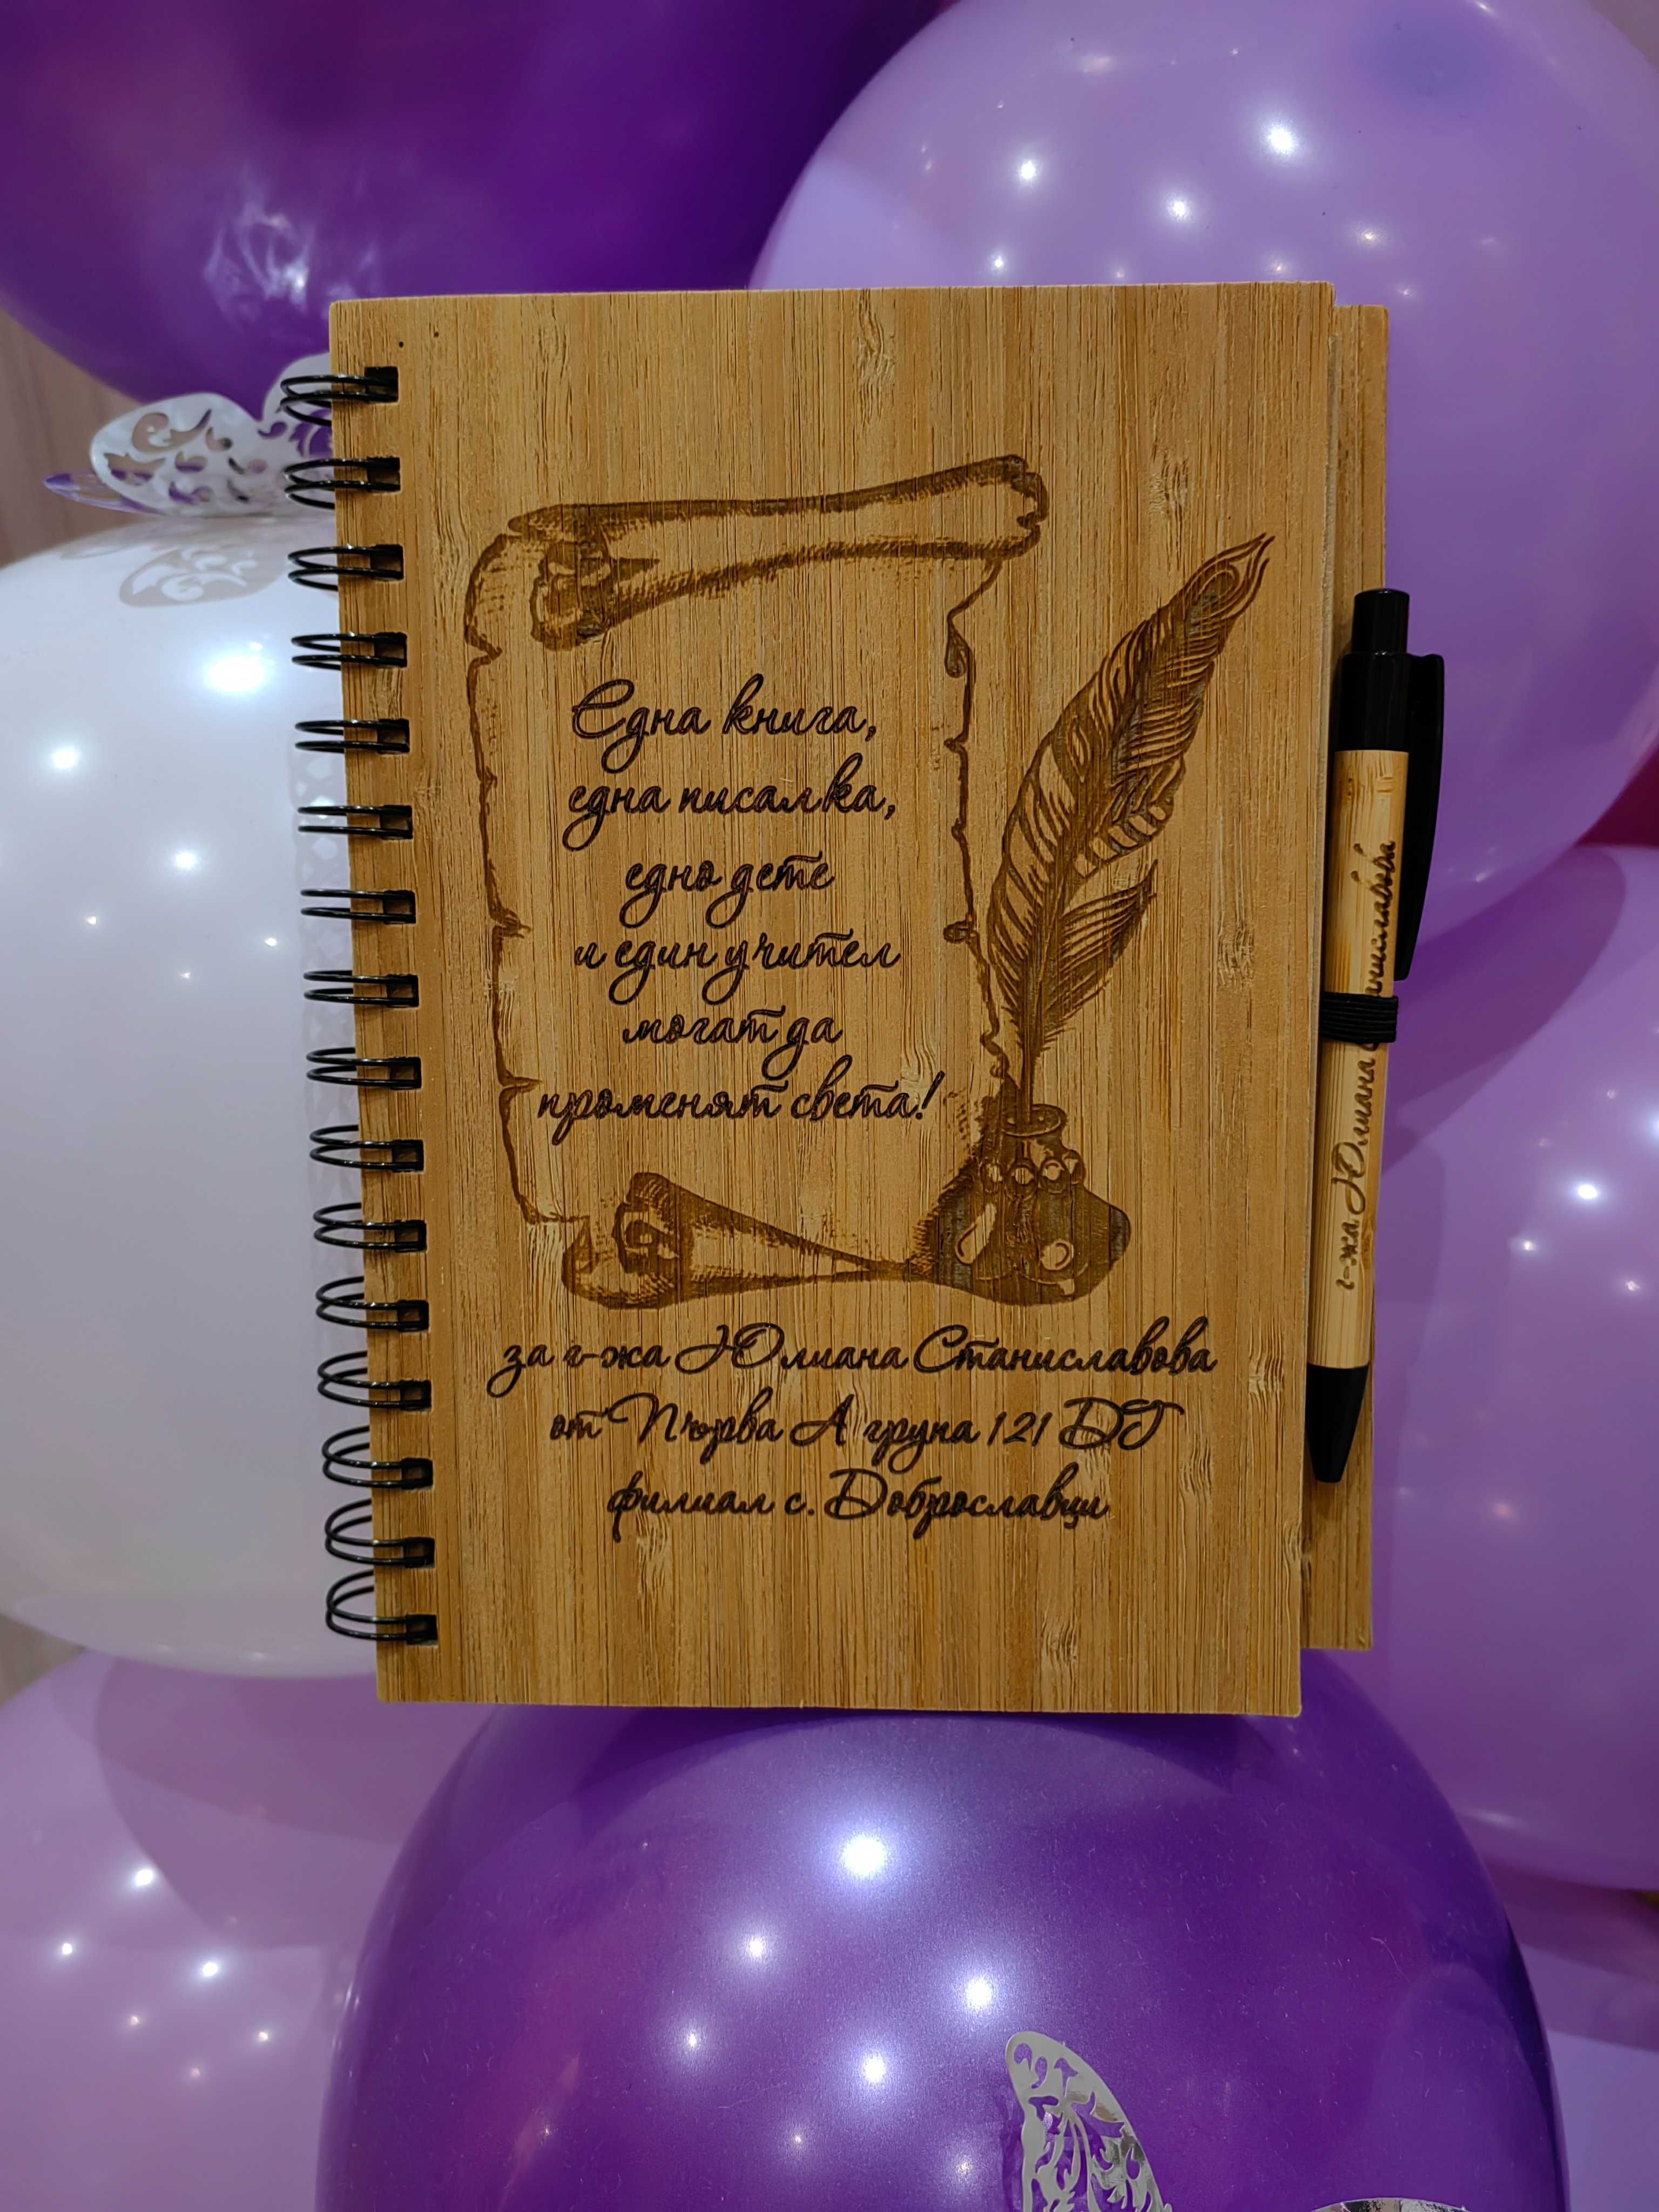 Една книга,
една писалка,
едно дете
и един учител
могат да
променят света!
за г-жа Юлиана Станиславова
от Първа А група 121 ДГ
филиал с. Доброславци
г-жа Юлиана